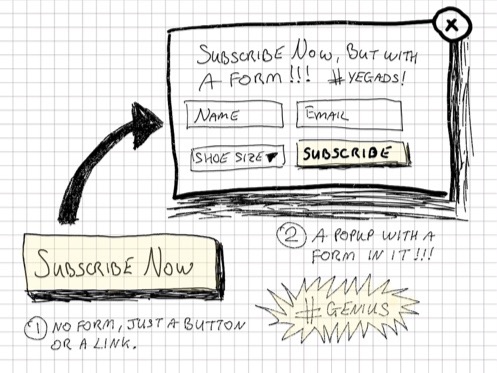 SUBSCRIBE NOW, BUT WITH
A FORM!!! #YEGADS!
NAME
EMAIL
SHOE SIZE
SUBSCRIBE
X
SUBSCRIBE NOW
1 NO FORM, JUST A BUTTON
OR A LINK.
2 A POPUP WITH A
FORM IN IT!!!
#GENIUS